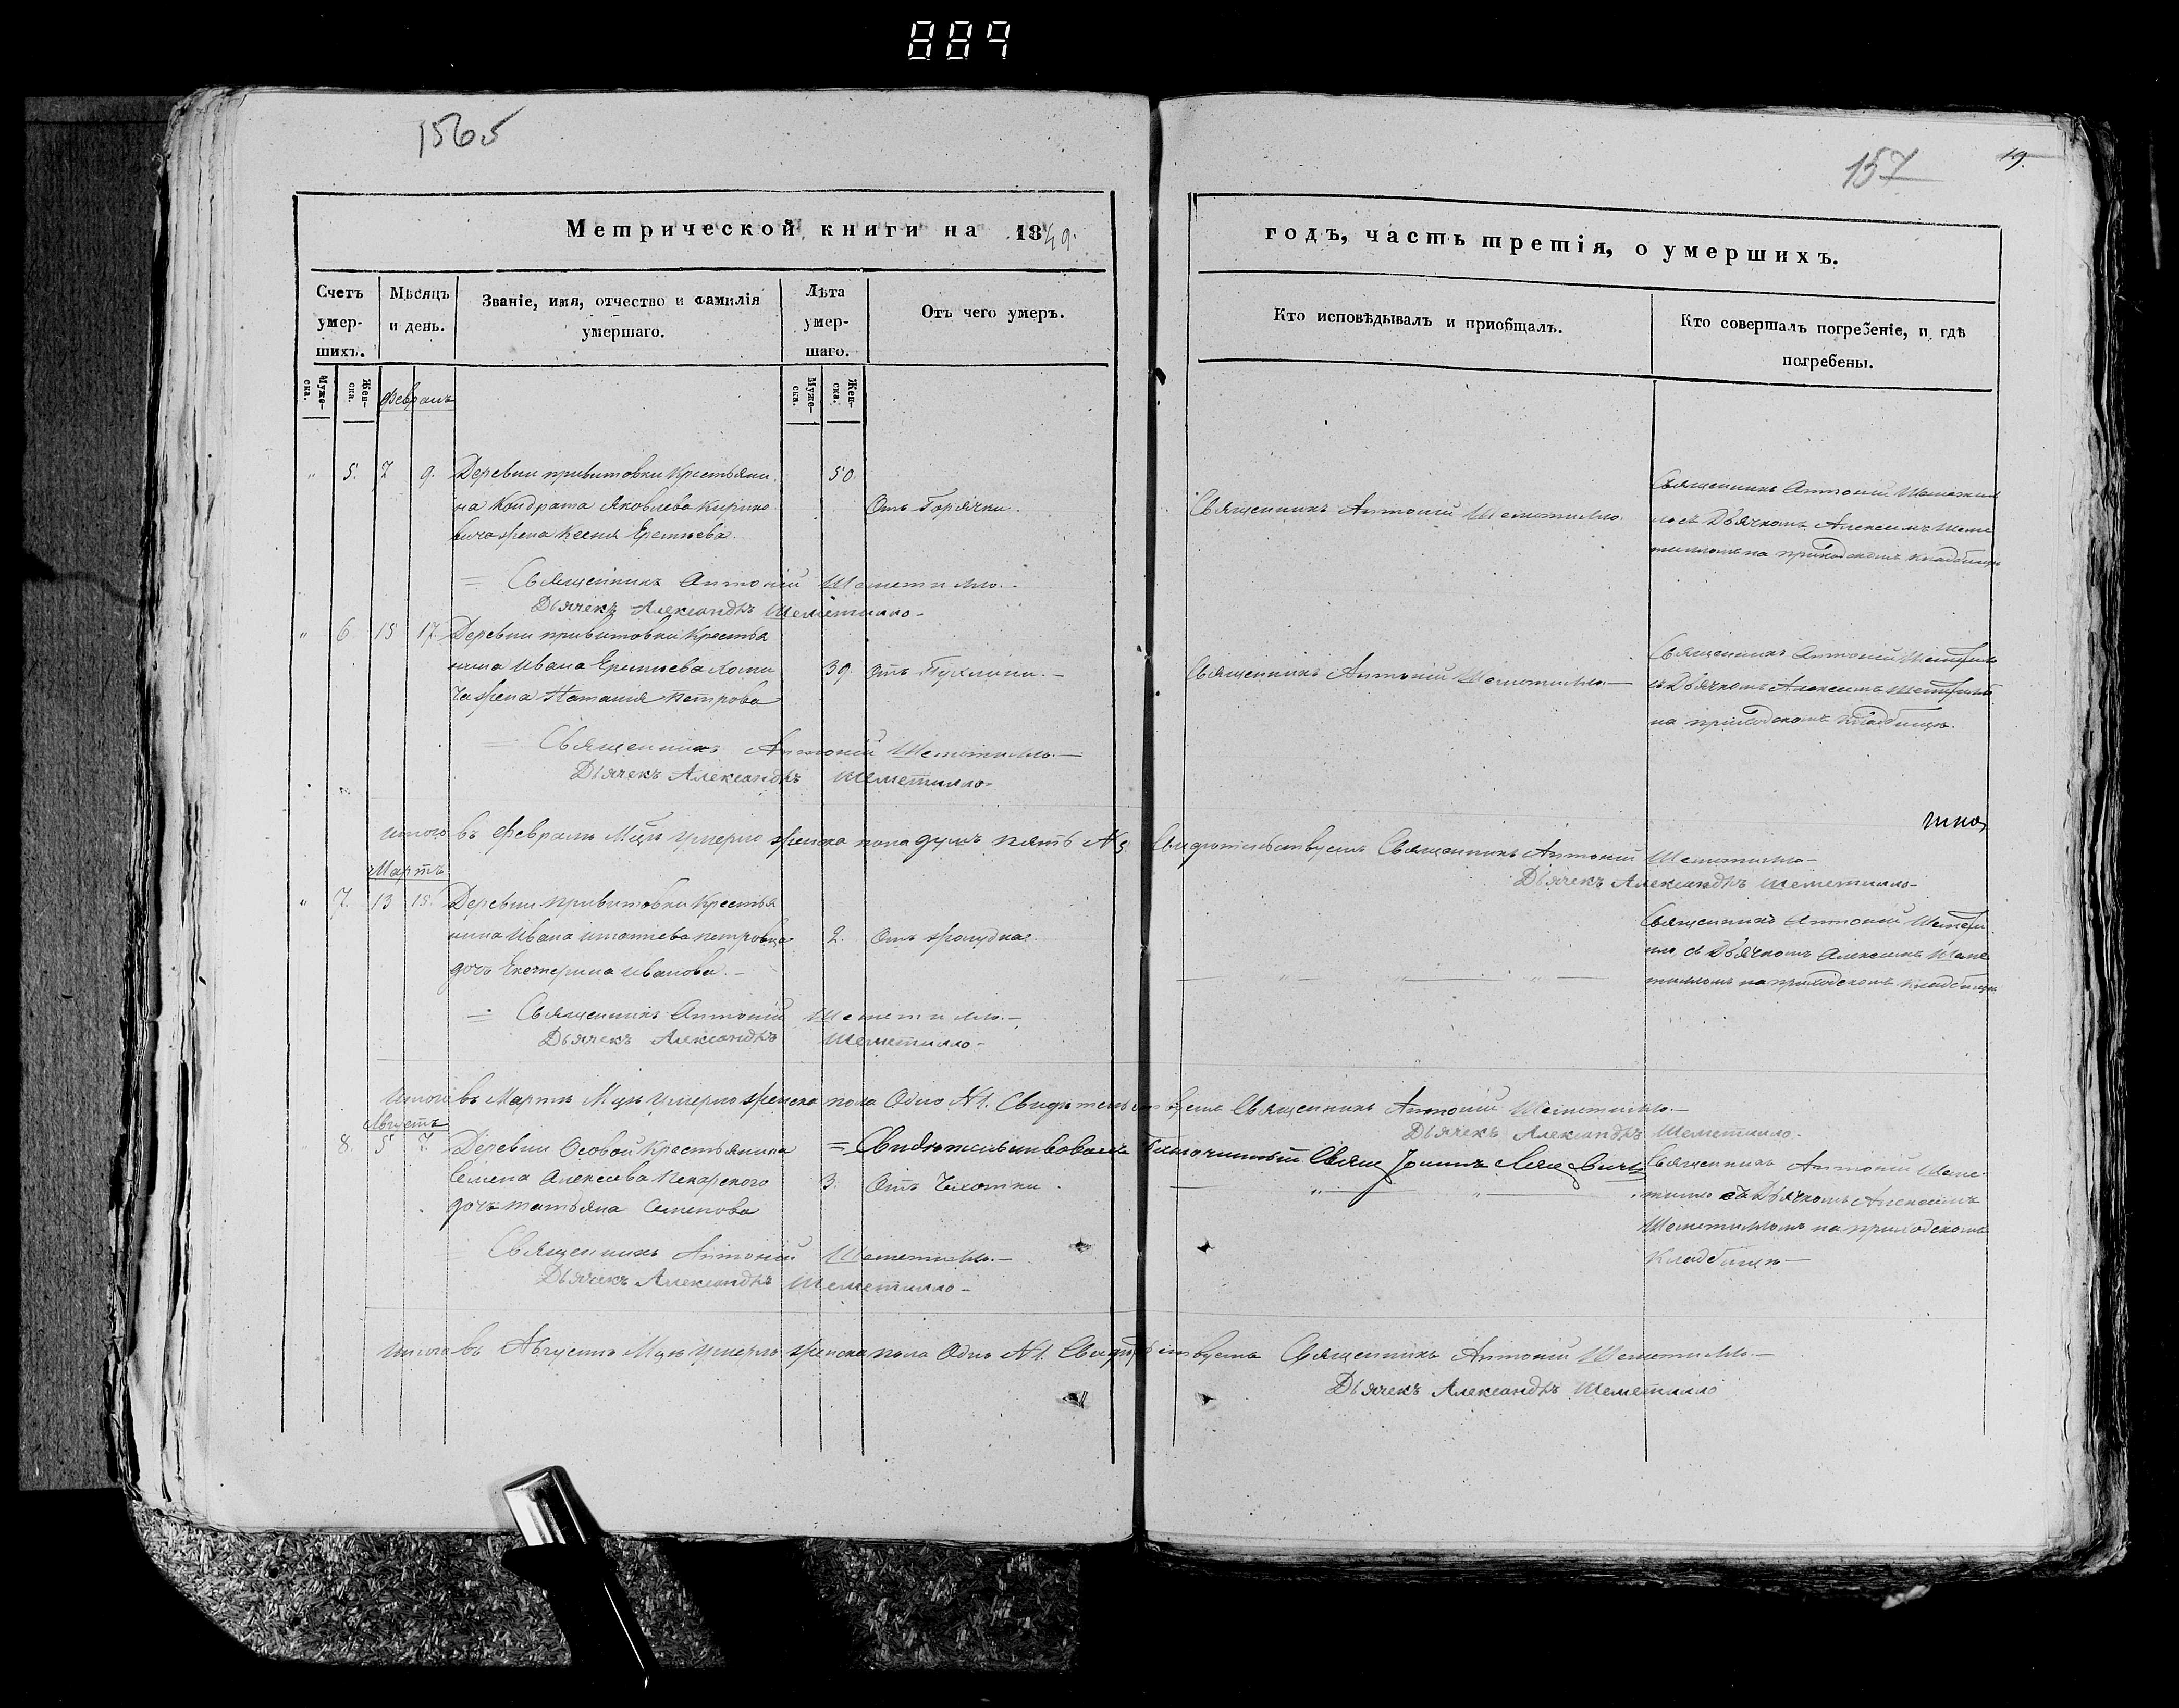 889
1565
157
19.
Метрической книги на 1849.
годъ, часть третія, о умершихъ.
Счетъ умер-шихъ.
Мѣсяцъ и день.
Званіе, имя, отчество и фамилія умершаго.
Лѣта умер-шаго.
Отъ чего умеръ.
Кто исповѣдывалъ и приобщалъ.
Кто совершалъ погребеніе, и гдѣ погребены.
Муже-ска.
Жен-ска.
Муже-ска.
Жен-ска.
Февраль
" 5. 7 9. Деревни привитовки Крестьяни-
50.
на Кондрата Яковлева Кирико
вича жена Ксенія Еремѣева.
Отъ Горячки.
Священникъ Антоній Шеметилло.
Священникъ Антоній Шеметил
ло съ Дьячкомъ Алексѣемъ Шеме
тилломъ на приходскомъ кладбищѣ
= Священникъ Антоній Шеметилло.-
Дьячекъ Александръ Шеметилло-
" 6. 15 17. Деревни привитовки Крестья
нина Ивана Еремѣева Хоми
39. Отъ Пухлины.-
ча жена Наталія Петрова
Священникъ Антоній Шеметилло.-
Священникъ Антоній
съ Дьячкомъ Алексѣемъ
на приходскомъ кладбищѣ.
= Священникъ Антоній Шеметилло.-
Дьячекъ Александръ Шеметилло-
Итого въ Февралѣ Мцѣ умерло женска пола душъ пять № 5 Свидѣтельствуемъ Священникъ Антоній Шеметилло-
Дьячекъ Александръ Шеметилло-
Мартъ
" 7. 13 15. Деревни привитовки Крестья
нина Ивана Игнатіева петровца
2. Отъ желудка.
дочь Екатерина Иванова.-
Священникъ Антоній Шемети
ло съ Дьячкомъ Алексѣемъ Шеме
тилломъ на приходскомъ кладбищѣ
= Священникъ Антоній Шеметилло.-
Дьячекъ Александръ Шеметилло-
Итого въ Мартѣ Мцѣ умерло женска пола Одно № 1. Свидѣтельствуемъ Священникъ Антоній Шеметилло.-
Дьячекъ Александръ Шеметилло-
Августъ
8. 5 7. Деревни Особой Крестьянина
= Свидѣтельствовалъ Благочинный Свящ Іоаннъ
Семена Алексѣева Пекарского
3. Отъ Чахотки.
дочь татьяна Семенова
Священникъ Антоній Шеме
тилло съ Дьячкомъ Алексѣемъ
Шеметилломъ на приходскомъ
Кладбищѣ-
= Священникъ Антоній Шеметилло.-
Дьячекъ Александръ Шеметилло-
Итого въ Августѣ Мцѣ умерло женска пола Одно № 1. Свидѣтельствуемъ Священникъ Антоній Шеметилло.-
Дьячекъ Александръ Шеметилло